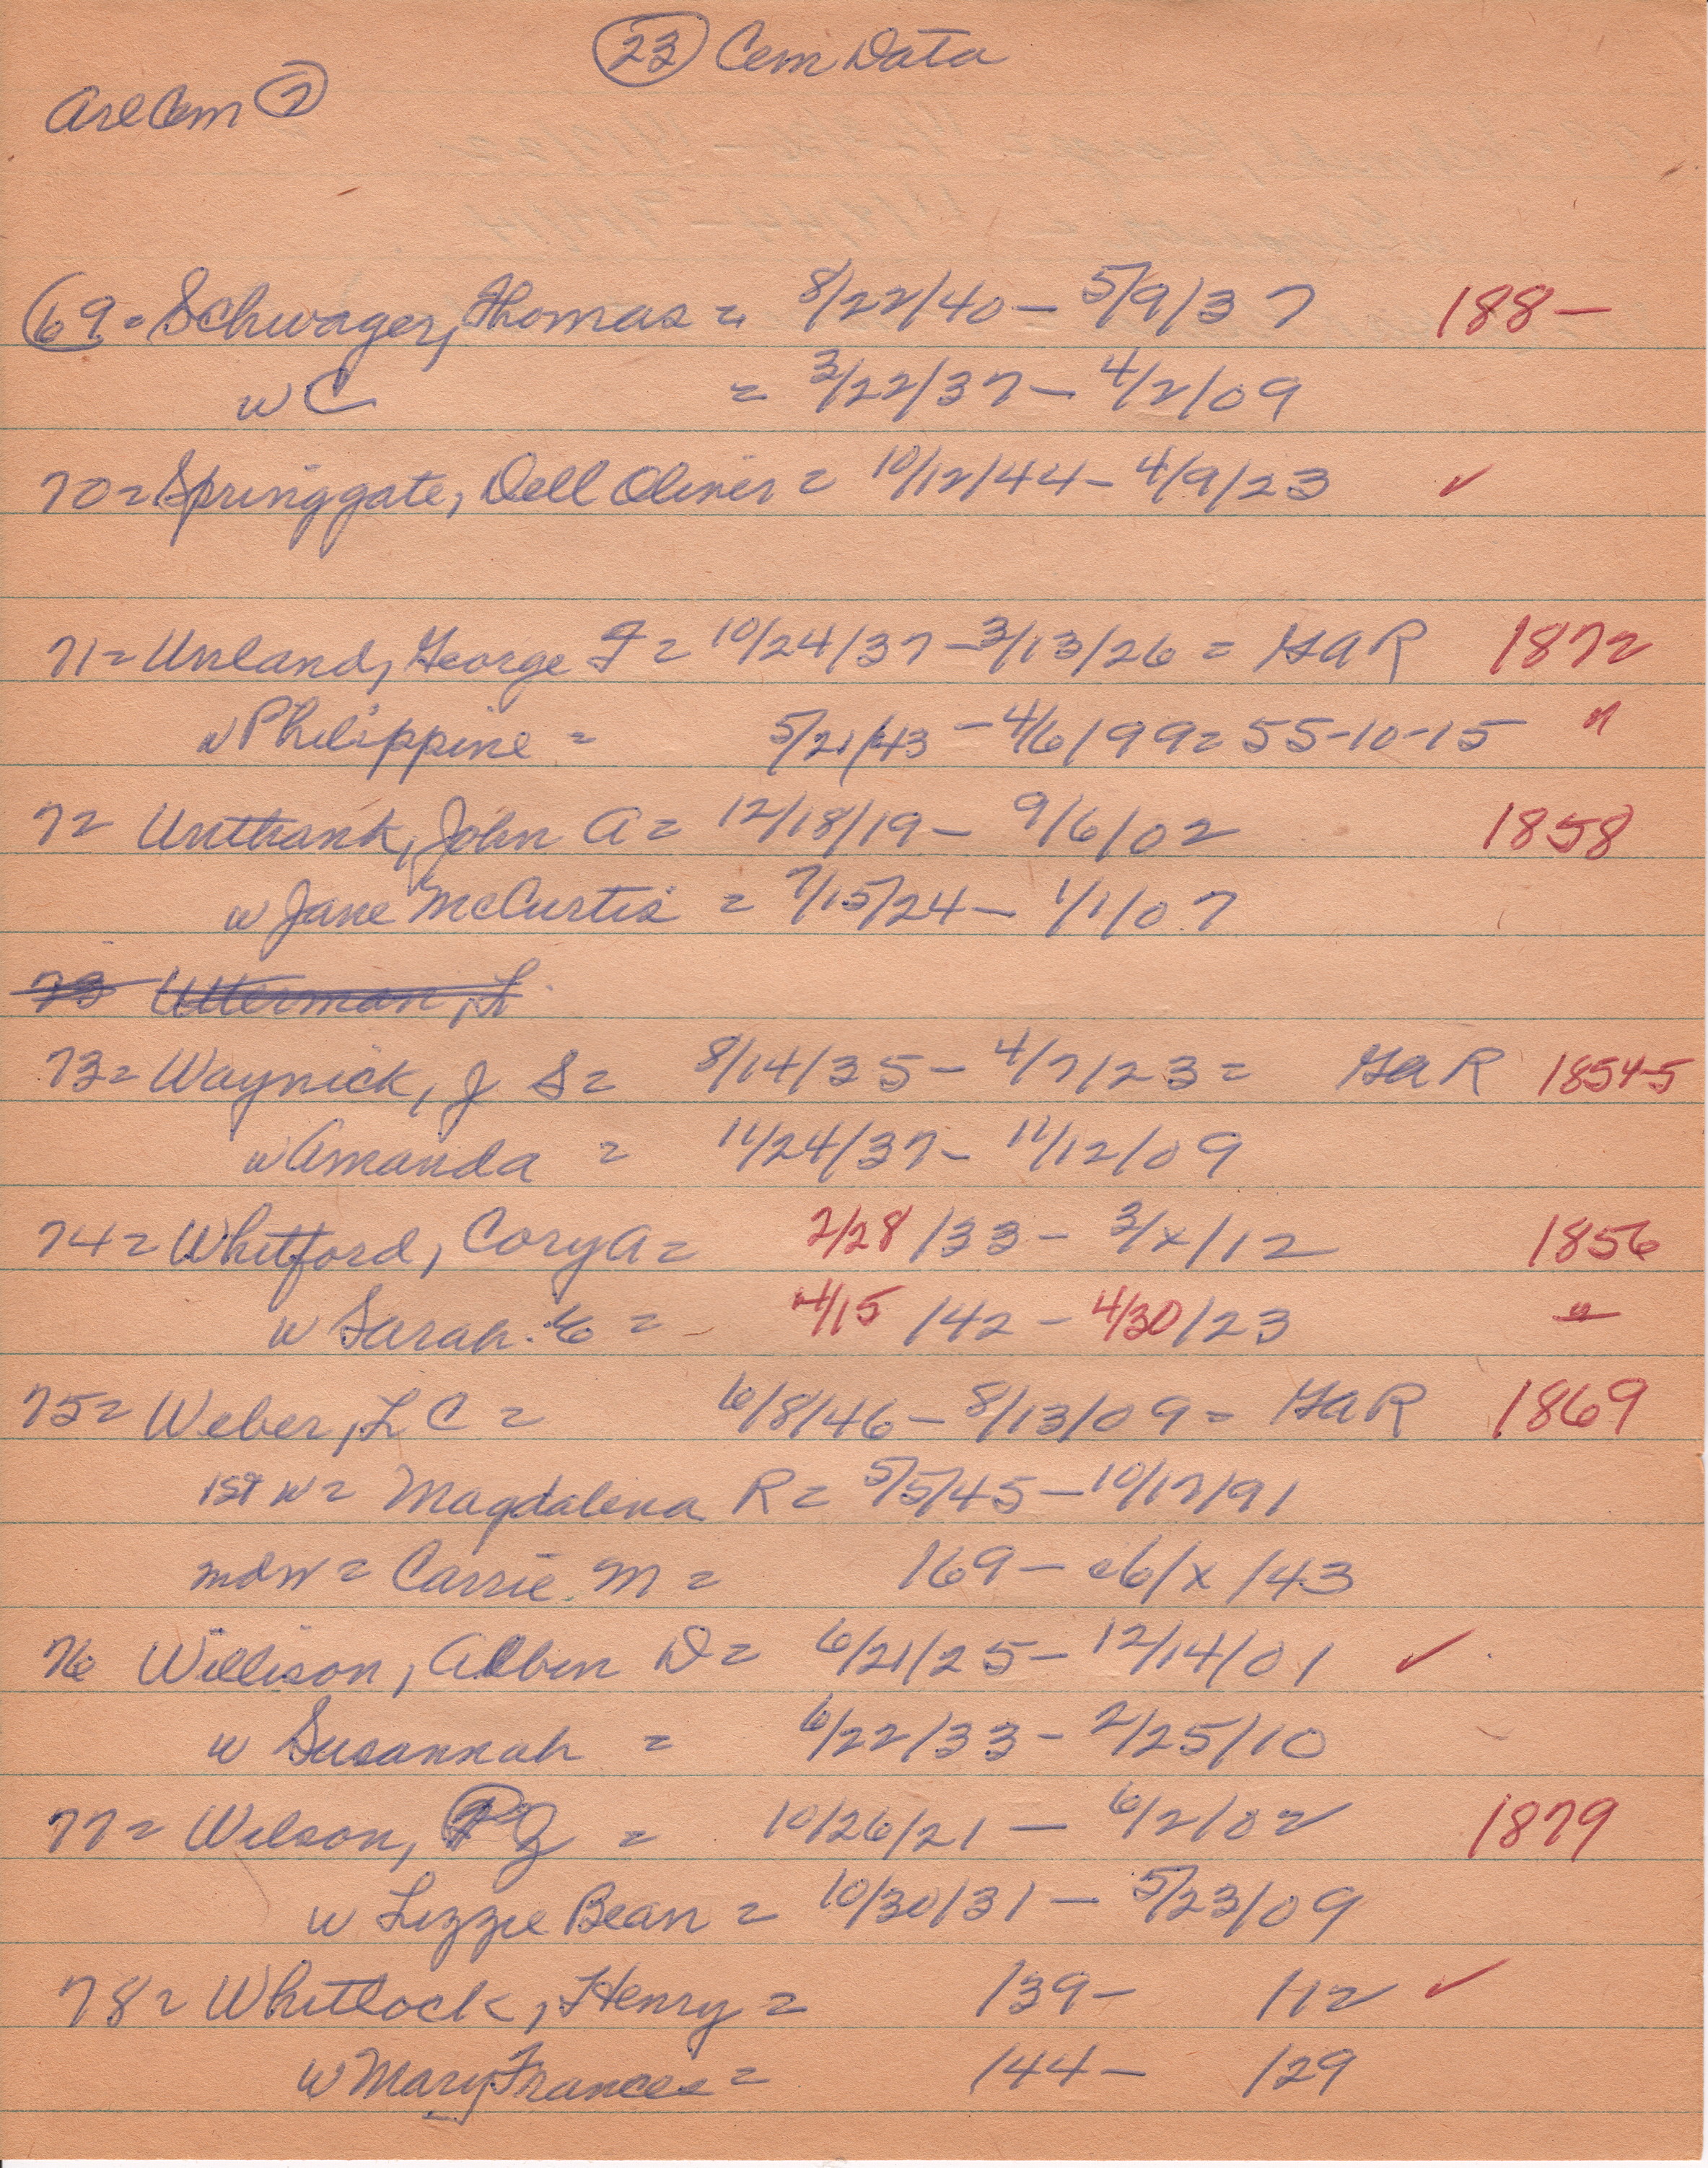 (23) Cem Data
Arl Cem (7)
(69 = Schwager, Thomas = 8/22/40 – 5/9/37 188–
w C = 3/22/37 – 4/2/09
70 = Springgate, Dell Oliver = 10/12/44 – 4/9/23 ✓
71 = Unland, George F = 10/24/37 – 3/13/26 = GAR 1872
w Philippine = 5/21/43 – 4/6/99 = 55-10-15 "
72 Unthank, John A = 12/18/19 – 9/6/02 1858
w Jane McCurtis = 7/15/24 – 1/1/07
73 Utterman, L
73 = Waynick, J S = 8/14/35 – 4/7/23 = GAR 1854-5
w Amanda = 11/24/37 – 11/12/09
74 = Whitford, Cory A = 2/28/33 – 3/x/12 1856
w Sarah E = 4/15/42 – 4/30/23 "
75 = Weber, L C = 10/8/46 – 8/13/09 = GAR 1869
1st w = Magdalena R = 5/5/45 – 10/17/91
2nd w = Carrie M = /69 – 6/x/43
76 Willison, Albin D = 6/21/25 – 12/14/01 ✓
w Susannah = 6/22/33 – 2/25/10
77 = Wilson, J = 10/26/21 – 6/2/02 1879
w Lizzie Bean = 10/30/31 – 5/23/09
78 = Whitlock, Henry = /39 – /12 ✓
w Mary Frances = /44 – /29